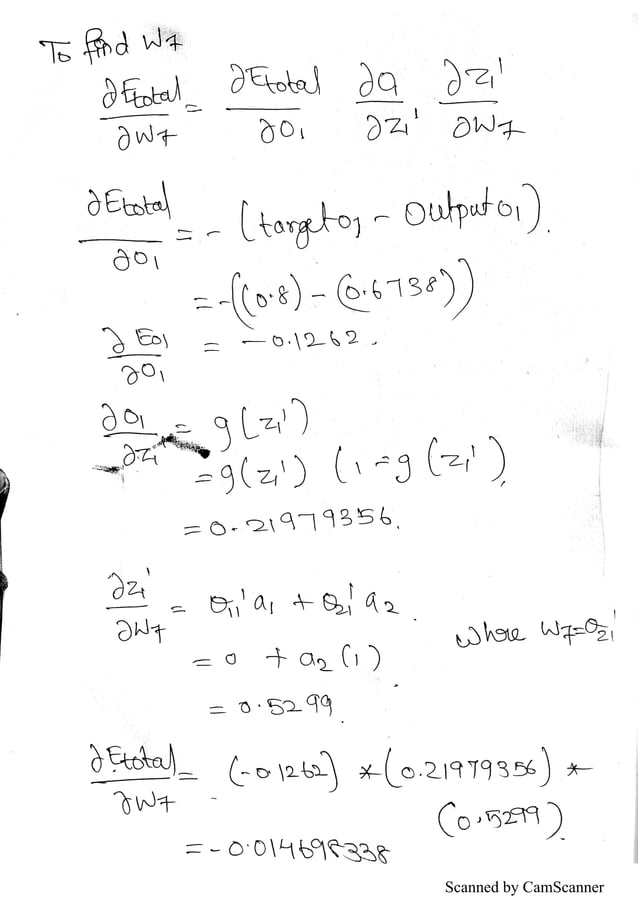 To find W7
∂Etotal/∂W7 = ∂Etotal/∂O1 ∂a/∂z1' ∂z1'/∂W7
∂Etotal/∂O1 = - (targeto1 - Outputo1).
= -((0.8) - (0.6738))
∂Eo1/∂O1 = -0.1262.
∂O1/∂z1' = g(z1')
= g(z1') (1-g(z1').
= 0.21979356.
∂z1'/∂W7 = θ11'a1 + θ21'a2.
where W7=θ21'
= 0 + a2(1)
= 0.5299
∂Etotal/∂W7 = (-01262) * (0.21979356) *
(0.5299)
= -0.014698338
Scanned by CamScanner